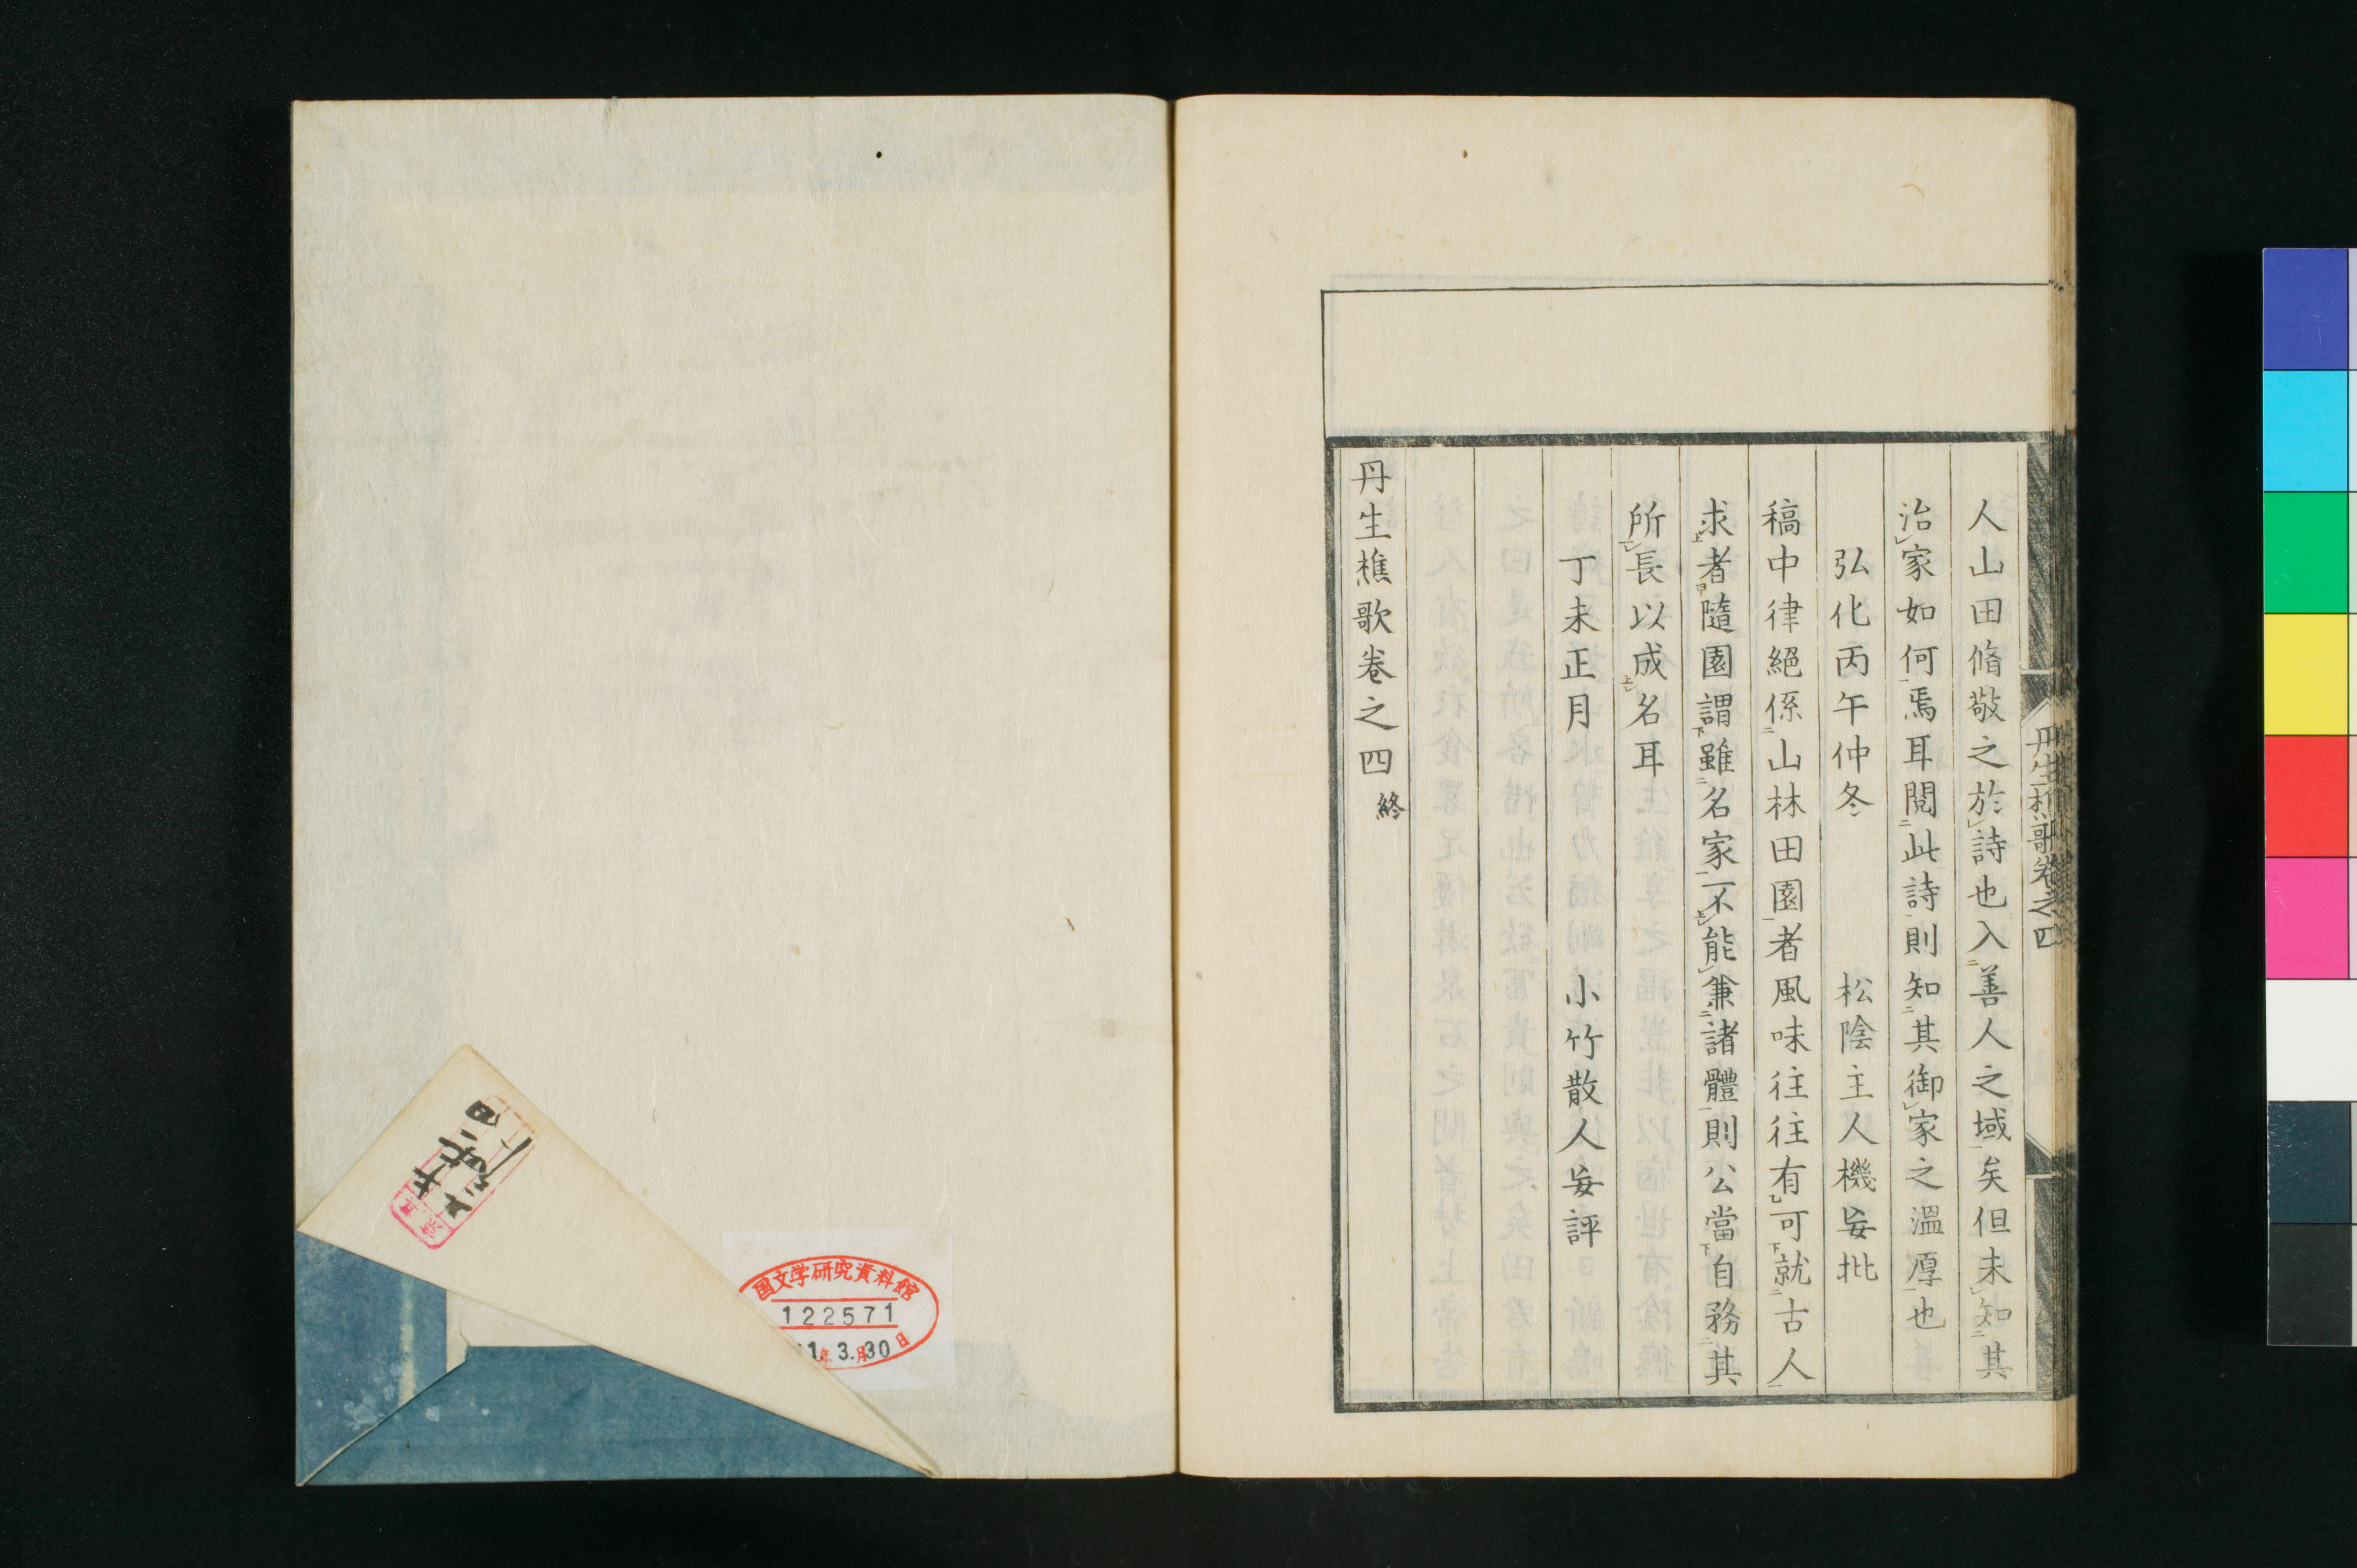 丹生樵歌卷之四
人山田脩敬之於詩也入善人之域矣但未知其
治家如何焉耳閱此詩則知其御家之溫厚也
弘化丙午仲冬　松陰主人機妄批
稿中律絕係山林田園者風味往往有可就古人
求者隨園謂雖名家不能兼諸體則公當自務其
所長以成名耳
丁未正月　小竹散人妄評
丹生樵歌卷之四終
国文学研究資料館
122571
1年3月30日